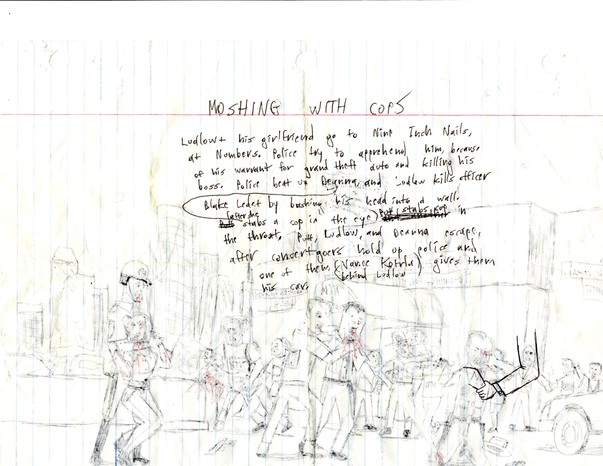 MOSHING WITH COPS
Ludlow + his girlfriend go to Nine Inch Nails,
at Numbers. Police try to apprehend him, because
of his warrant for grand theft auto and killing his
boss. Police beat up Deanna, and Ludlow kills officer
Blake Ledet by bashing his head into a wall.
(after he
stabs a cop in the eye) Putt stabs cop in
the throat, Putt, Ludlow, and Deanna escape,
after concertgoers hold up police and
one of them, (Vance Kotrla) gives them
(behind Ludlow
his car.